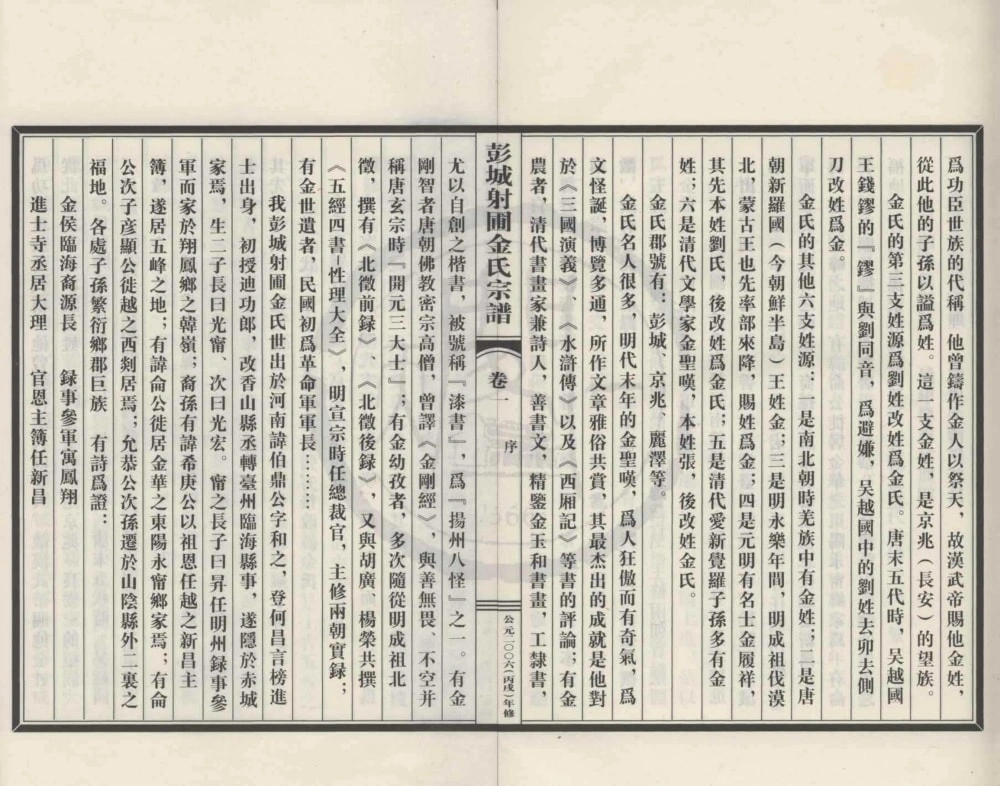 爲功臣世族的代稱，他曾鑄作金人以祭天，故漢武帝賜他金姓，
從此他的子孫以謚爲姓。這一支金姓，是京兆（長安）的望族。
金氏的第三支姓源爲劉姓改姓爲金氏。唐末五代時，吳越國
王錢鏐的『鏐』與劉同音，爲避嫌，吳越國中的劉姓去卯去側
刀改姓爲金。
金氏的其他六支姓源：一是南北朝時羌族中有金姓；二是唐
朝新羅國（今朝鮮半島）王姓金；三是明永樂年間，明成祖伐漠
北，蒙古王也先率部來降，賜姓爲金；四是元明有名士金履祥，
其先本姓劉氏，後改姓爲金氏；五是清代愛新覺羅子孫多有金
姓；六是清代文學家金聖嘆，本姓張，後改姓金氏。
金氏郡號有：彭城、京兆、麗澤等。
金氏名人很多，明代末年的金聖嘆，爲人狂傲而有奇氣，爲
文怪誕，博覽多通，所作文章雅俗共賞，其最杰出的成就是他對
於《三國演義》、《水滸傳》以及《西厢記》等書的評論；有金
農者，清代書畫家兼詩人，善書文，精鑒金玉和書畫，工隸書，
彭城射圃金氏宗譜
卷一
序
公元二〇〇六（丙戌）年修
尤以自創之楷書，被號稱『漆書』，爲『揚州八怪』之一。有金
剛智者唐朝佛教密宗高僧，曾譯《金剛經》，與善無畏、不空并
稱唐玄宗時『開元三大士』；有金幼孜者，多次隨從明成祖北
徵，撰有《北徵前録》、《北徵後録》，又與胡廣、楊榮共撰
《五經四書–性理大全》，明宣宗時任總裁官，主修兩朝實録；
有金世遺者，民國初爲革命軍軍長………
我彭城射圃金氏世出於河南諱伯鼎公字和之，登何昌言榜進
士出身，初授迪功郎，改香山縣丞轉臺州臨海縣事，遂隱於赤城
家焉，生二子長曰光甯、次曰光宏。甯之長子曰昇任明州録事參
軍而家於翔鳳鄉之韓嶺；裔孫有諱希庚公以祖恩任越之新昌主
簿，遂居五峰之地；有諱侖公徙居金華之東陽永甯鄉家焉；有侖
公次子彦顯公徙越之西剡居焉；允恭公次孫遷於山陰縣外二裏之
福地。各處子孫繁衍鄉郡巨族　有詩爲證：
金侯臨海裔源長　録事參軍寓鳳翔
進士寺丞居大理　官恩主簿任新昌